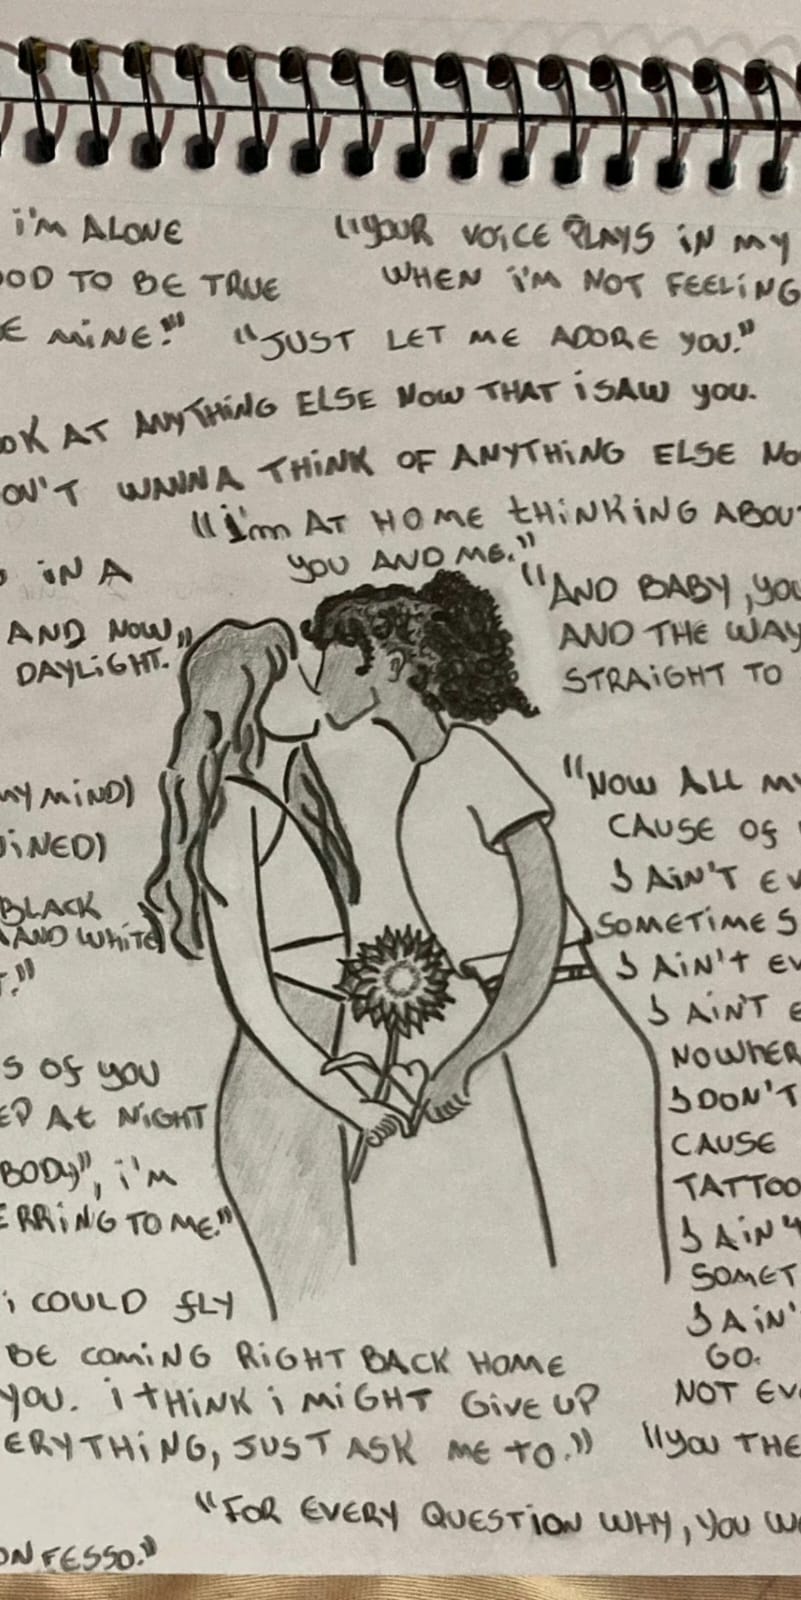 i'm ALONE
"YOUR VOiCE PLAYS iN my
OOD TO BE TRUE
WHEN i'M NOT FEELiNG
E MiNE."
"JUST LET ME ADORE you."
OOK AT ANyTHiNG ELSE NOW THAT i SAW you.
ON'T WANNA THiNK OF ANYTHiNG ELSE NO
"I'm AT HOME tHiNKiNG ABOUT
you AND ME."
iN A
AND NOW
DAYLiGHT."
"AND BABY, YOU
AND THE WAY
STRAiGHT TO
my MiND)
UiNED)
BLACK
AND WHitE
T."
"NOW ALL My
CAUSE Of
I AiN'T EV
SOMETiMES
I AiN't EV
I AiNT E
NOWhER
I DON'T
CAUSE
TATTOO
I AiN'
SOMET
I AiN'
GO.
NOT EV
S Of you
ED At NiGHT
BODy", i'm
ERRiNG TO ME."
i COULD fLy
BE COMiNG RiGHT BACK HOME
you. i tHiNK i MiGHT GiVE UP
ERYTHiNG, JUST ASK ME TO."
"you THE
"FOR EVERY QUESTiON WHY, YOU WE
ONFESSO."